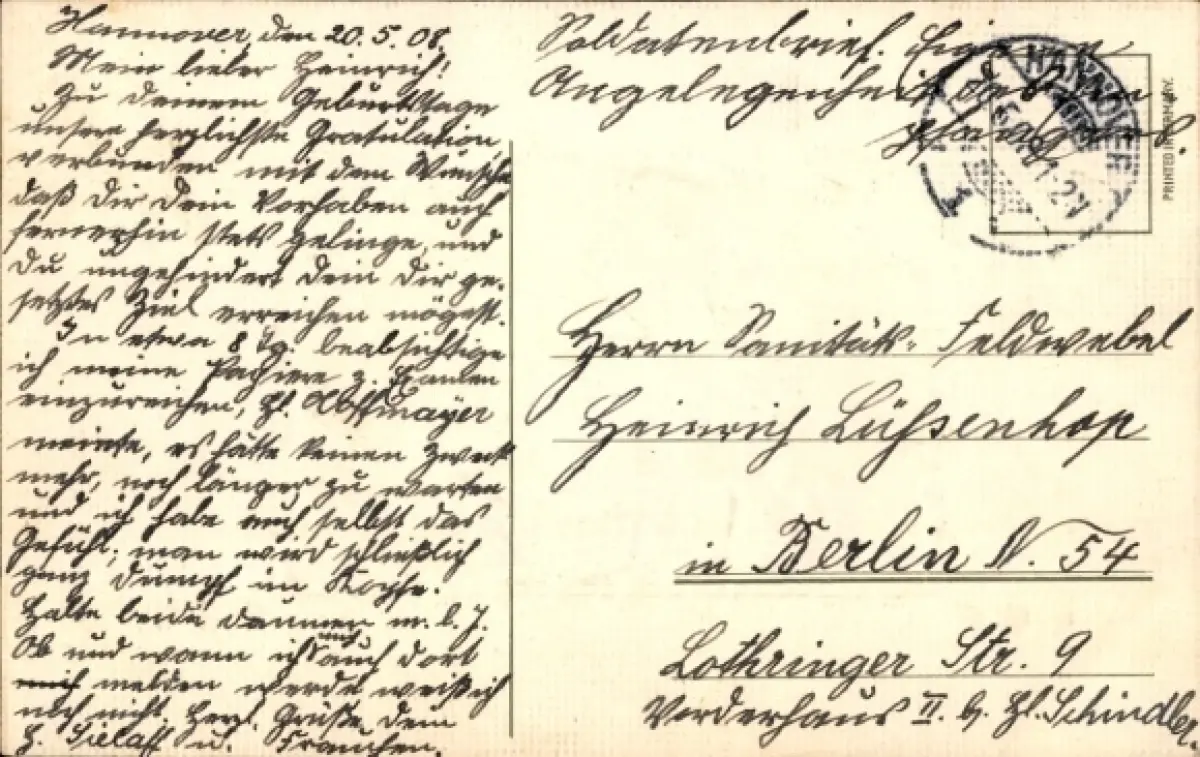 Hannover, den 20. 5. 08.
Mein lieber Heinrich!
Zu deinem Geburtstage
unsere herzlichste Gratulation
verbunden mit dem Wunsche
daß dir dein Vorhaben auch
fernerhin stets gelinge, und
du ungehindert dein dir ge-
setztes Ziel erreichen mögest.
In etwa 8 Tg. beabsichtige
ich meine Papiere z. Examen
einzureichen, H.
meinte, es hätte keinen Zweck
mehr, noch länger zu warten
und ich habe auch selbst das
Gefühl; man wird schließlich
ganz dumpf im Kopfe.
Halte beide Daumen m. l. J.
Ob und wann ich mich auch dort
melden werde weiß ich
noch nicht. Herzl. Grüße Dein
u. Frauchen.
Soldatenbrief. Eigene
Angelegenheit des Em-
pfängers.
HANNOVER
PRINTED IN GERMANY.
Herrn Sanitäts-Feldwebel
Heinrich Lühsenhop
in Berlin N. 54
Lothringer Str. 9
Vorderhaus II. b. H. Schindler.